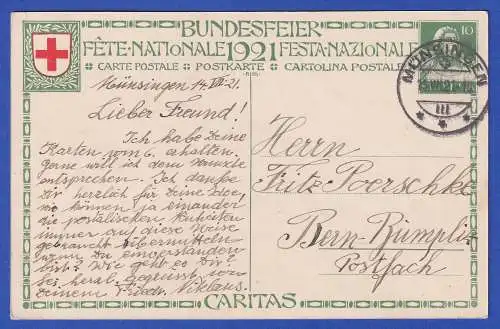 BUNDESFEIER
FÊTE·NATIONALE 1921 FESTA·NAZIONALE
CARTE POSTALE POSTKARTE CARTOLINA POSTALE
10
MÜNSINGEN
III
Münsingen 14.VIII.21.
Lieber Freund!
Ich habe Deine
Karten vom 6. erhalten.
Gerne will ich dem Wunsche
entsprechen. Ich danke
Dir herzlich für Deine Idee,
wir können ja einander
die postalischen
immer auf diese Weise
gebraucht übermitteln
wenn Du einverstanden
bist? Wie geht es Dir?
Sei herzl. gegrüsst von
Deinem Friedr. Niklaus.
Herrn
Fritz Poerschke
Bern-Bümpliz
Postfach
CARITAS